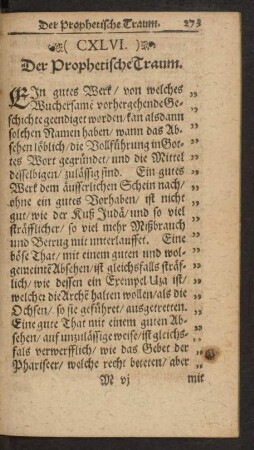 Der Prophetische Traum. 273
( CXLVI. )
Der Prophetische Traum.
EIn gutes Werk / von welches „
Wuchersame vorhergehende Ge- „
schichte geendiget worden / kan alsdann „
solchen Namen haben / wann das Ab- „
sehen löblich / die Vollführung in Got- „
tes Wort gegründet / und die Mittel „
desselbigen / zulässig sind. Ein gutes „
Werk dem äusserlichen Schein nach / „
ohne ein gutes Vorhaben / ist nicht „
gut / wie der Kuß Judä / und so viel „
sträfflicher / so viel mehr Mißbrauch „
und Betrug mit unterlauffet. Eine „
böse That / mit einem guten und wol- „
gemeinte Absehen / ist gleichsfalls sträf- „
lich / wie dessen ein Exempel Uza ist / „
welcher die Arche halten wollen / als die „
Ochsen / so sie geführet / ausgetretten. „
Eine gute That mit einem guten Ab- „
sehen / auf unzulässige weise / ist gleichs- „
fals verwerfflich / wie das Gebet der „
Phariseer / welche recht beteten / aber „
M vj mit